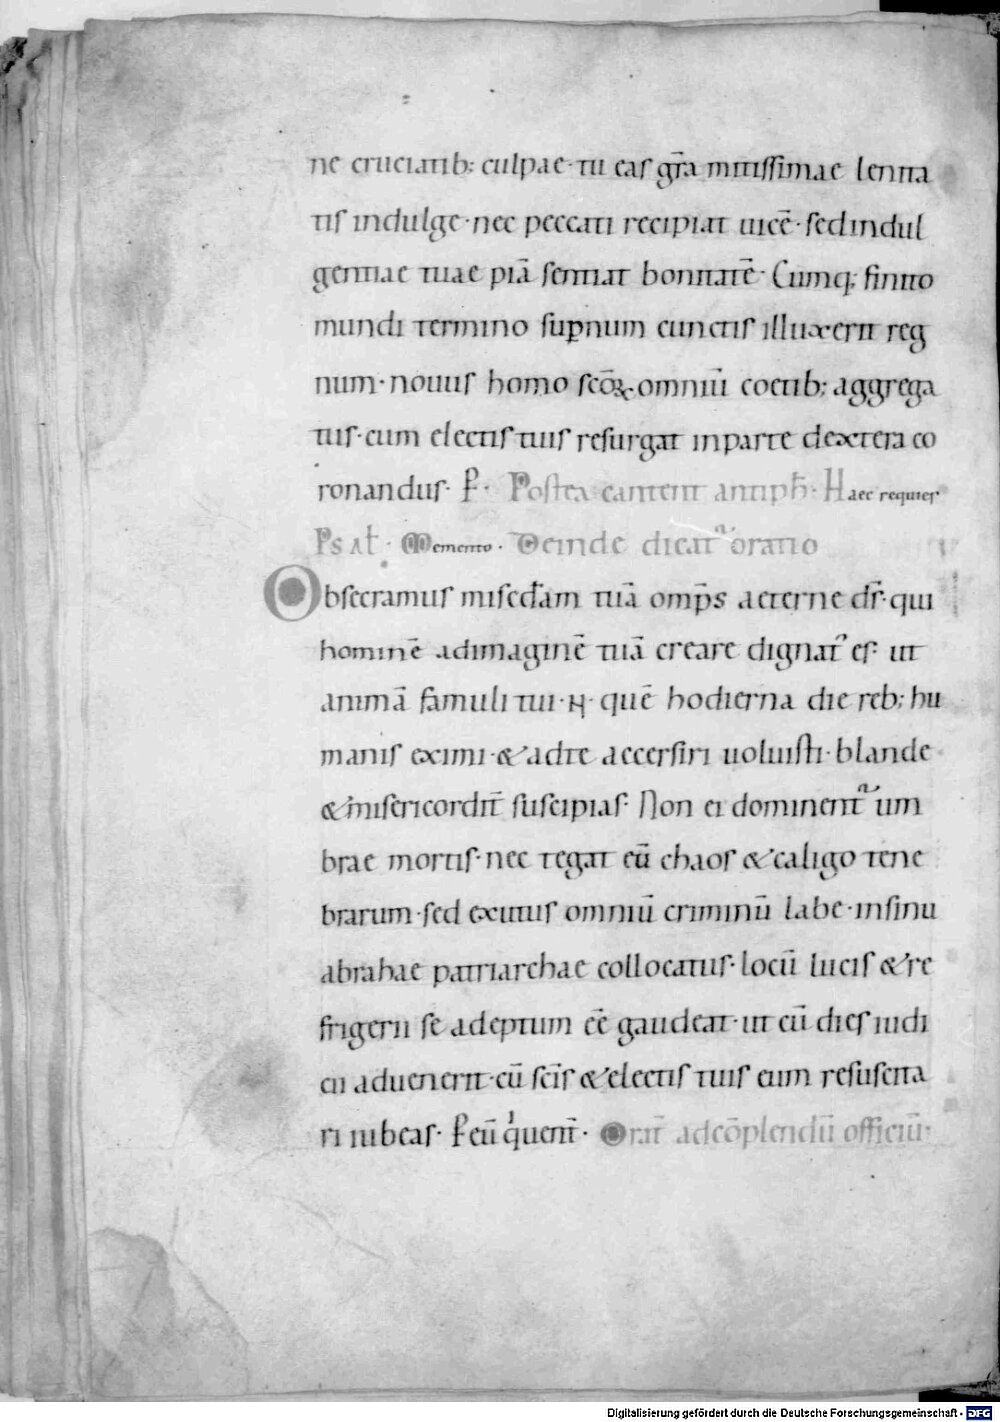 ne cruciatib; culpae · tu eas gr̄a mitissimae lenita
tis indulge · nec peccati recipiat uicē · sed indul
gentiae tuae piā sentiat bonitatē · Cumq; finito
mundi termino sup̄num cunctis illuxerit reg
num · nouus homo sc̄oꝝ omniū coetib; aggrega
tus · cum electis tuis resurgat inparte dextera co
ronandus · P̄ · Postea cantent antiph̄ · Haec requies
Psal̄ · Memento · Deinde dicat᷑ oratio
Obsecramus misc̄dam tuā omp̄s aeterne d̄s · qui
hominē adimaginē tuā creare dignat᷑ es · ut
animā famuli tui · N · quē hodierna die reb; hu
manis eximi · & adte accersiri uoluisti · blande
& misericordit̄ suscipias · Non ei dominent᷑ um
brae mortis · nec tegat eū chaos & caligo tene
brarum · sed exutus omniū criminū labe · insinu
abrahae patriarchae collocatus · locū lucis & re
frigerii se adeptum eē gaudeat · ut cū dies iudi
cii aduenerit · cū sc̄is & electis tuis eum resuscita
ri iubeas · P̄ eū quent̄ · Orat̄ adcōplendū officiū ·
Digitalisierung gefördert durch die Deutsche Forschungsgemeinschaft - DFG